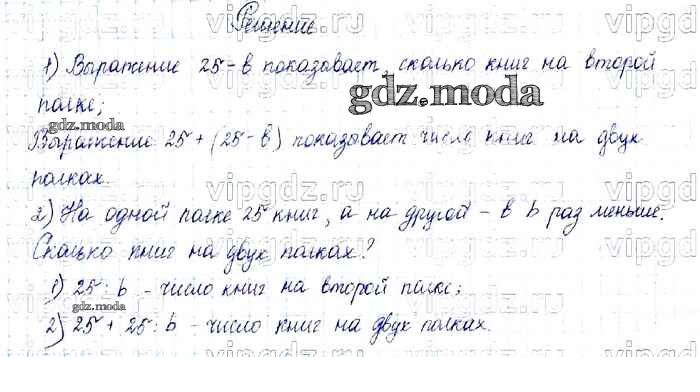 Решение
1) Выражение 25-в показывает, сколько книг на второй
полке;
Выражение 25+(25-в) показывает число книг на двух
полках.
2) На одной полке 25 книг, а на другой - в b раз меньше.
Сколько книг на двух полках?
1) 25:b - число книг на второй полке;
2) 25+25:b - число книг на двух полках.
gdz.moda
gdz.moda
gdz.moda
vipgdz.ru